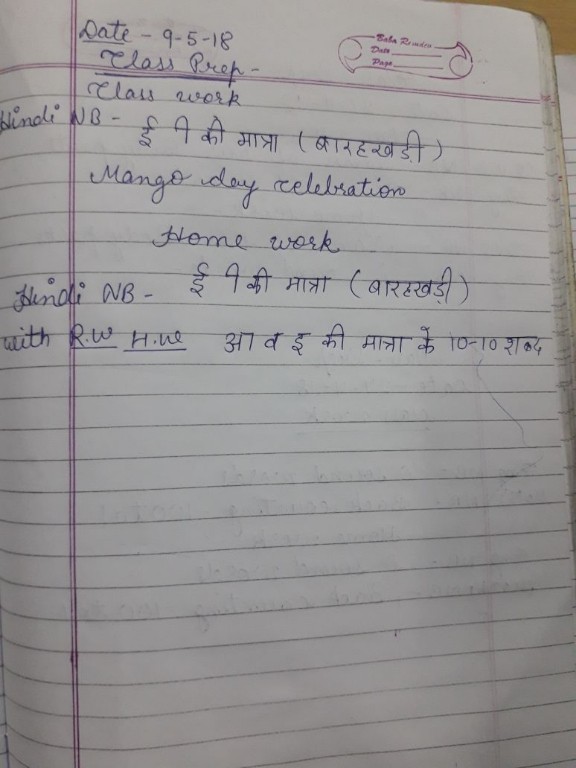 Date - 9-5-18
Baba Ramdev
Date
Page
Class Prep -
Class work
Hindi NB - ई ी की मात्रा (बारहखड़ी)
Mango day celebration
Home work
Hindi NB - ई ी की मात्रा (बारहखड़ी)
with R.W H.W आ व इ की मात्रा के 10-10 शब्द